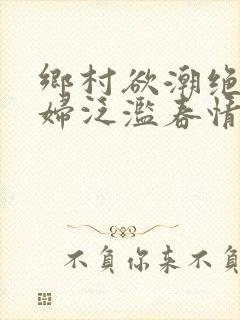 鄉村欲潮绝
婦泛濫春情
不負你来不負